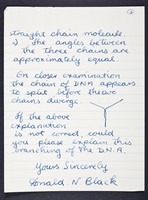 straight chain molecule.
2) The angles between
the three chains are
approximately equal.
On closer examination
the chain of DNA appears
to split before these
chains diverge.
If the above
explanation
is not correct, could
you please explain this
branching of the D.N.A.
Yours Sincerely
Ronald N. Black